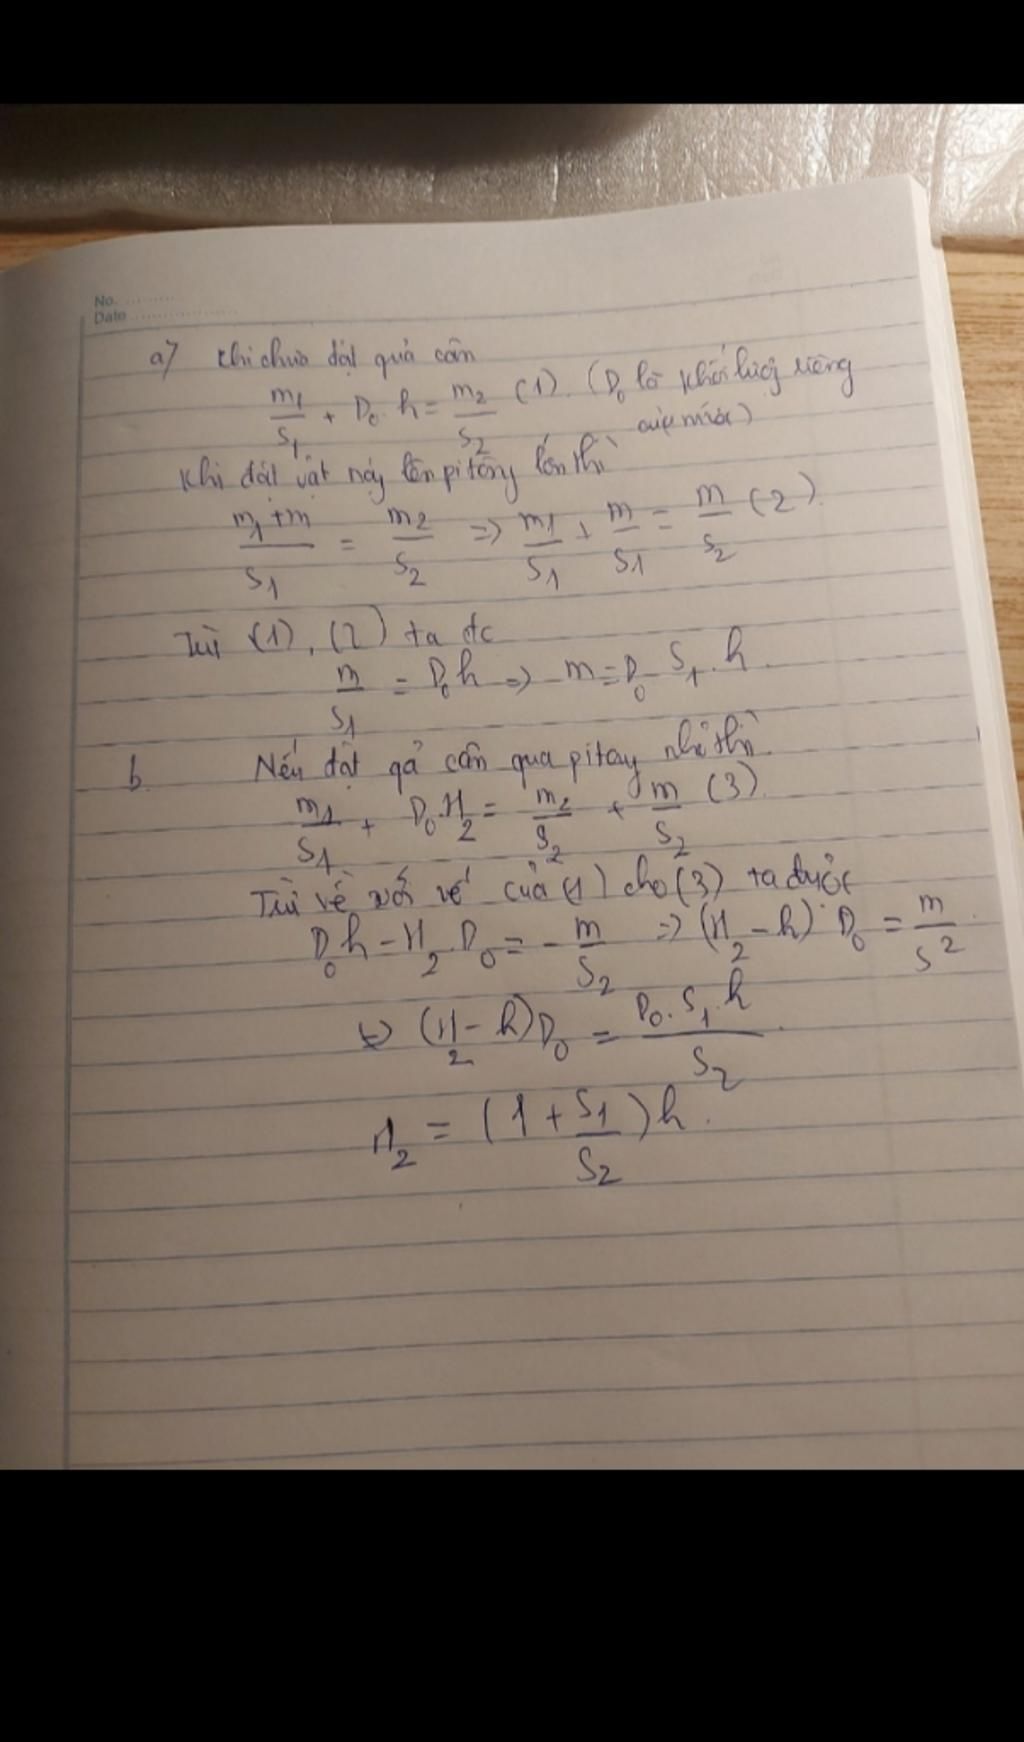 No.
Date
a) Khi chưa đặt quả cân
m1/S1 + D0.h = m2/S2 (1). (D0 là khối lượng riêng
của nước)
Khi đặt vật nặng lên pitông lớn thì
m1+m/S1 = m2/S2 => m1/S1 + m/S1 = m/S2 (2).
Từ (1), (2) ta đc
m/S1 = D0h => m = D0 S1.h.
b. Nếu đặt qả cân qua pitay nhỏ thì
m1/S1 + D0.H2 = m2/S2 + m/S2 (3)
Trừ vế với vế của (1) cho (3) ta được
D0h - H2 D0 = -m/S2 => (H2 - h).D0 = m/S2
<=> (H2 - h)D0 = D0.S1.h/S2
H2 = (1 + S1/S2)h.